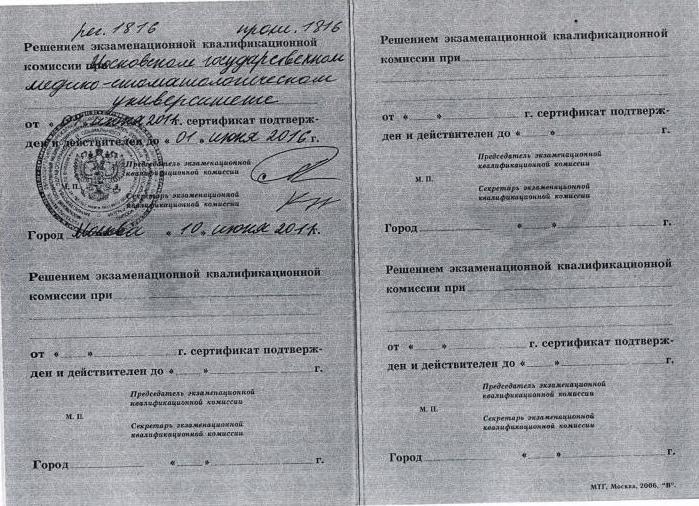 рег. 1816 прот. 1816
Решением экзаменационной квалификационной
комиссии при Московском государственном
медико-стоматологическом
университете
от « 01 » июня 2011 г. сертификат подтверж-
ден и действителен до « 01 » июня 2016 г.
Председатель экзаменационной
квалификационной комиссии
М. П.
Секретарь экзаменационной
квалификационной комиссии
Город Москва « 10 » июня 2011 г.
Решением экзаменационной квалификационной
комиссии при
от « » г. сертификат подтверж-
ден и действителен до « » г.
Председатель экзаменационной
квалификационной комиссии
М. П.
Секретарь экзаменационной
квалификационной комиссии
Город « » г.
Решением экзаменационной квалификационной
комиссии при
от « » г. сертификат подтверж-
ден и действителен до « » г.
Председатель экзаменационной
квалификационной комиссии
М. П.
Секретарь экзаменационной
квалификационной комиссии
Город « » г.
Решением экзаменационной квалификационной
комиссии при
от « » г. сертификат подтверж-
ден и действителен до « » г.
Председатель экзаменационной
квалификационной комиссии
М. П.
Секретарь экзаменационной
квалификационной комиссии
Город « » г.
МТГ, Москва, 2006, "В".